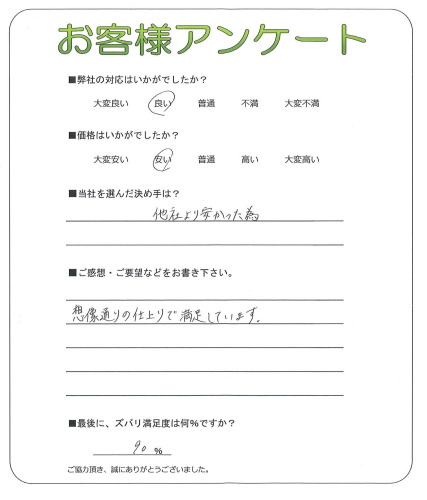 お客様アンケート
■弊社の対応はいかがでしたか？
大変良い 良い 普通 不満 大変不満
■価格はいかがでしたか？
大変安い 安い 普通 高い 大変高い
■当社を選んだ決め手は？
他社より安かった為
■ご感想・ご要望などをお書き下さい。
想像通りの仕上りで満足しています。
■最後に、ズバリ満足度は何%ですか？
90 %
ご協力頂き、誠にありがとうございました。